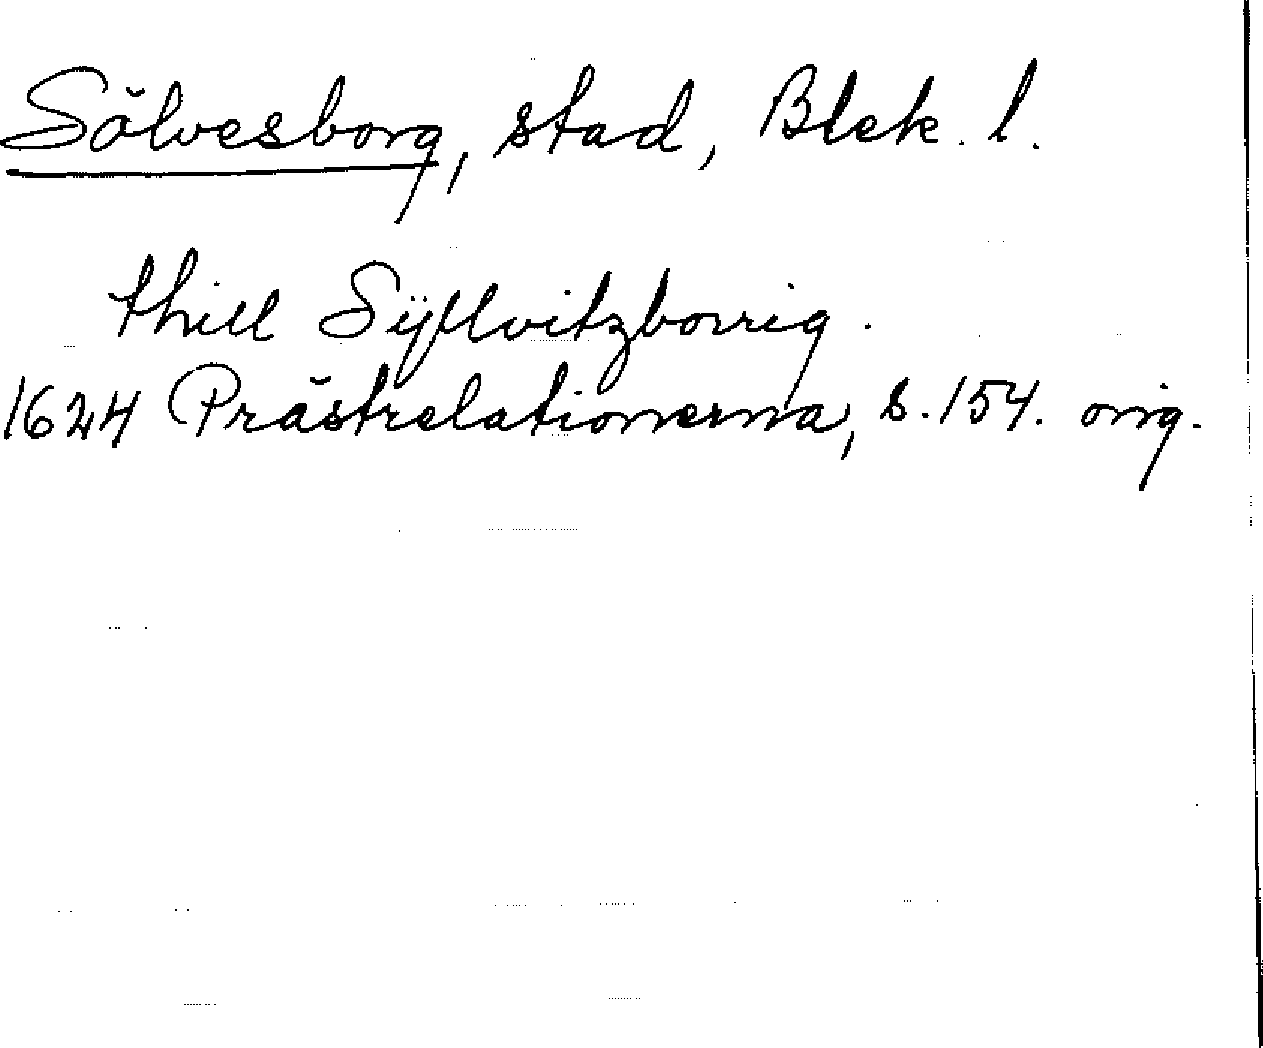 Sölvesborg, stad, Blek. l.
thill Sÿllvitzborrig.
1624 Prästrelationerna, s. 154. orig.